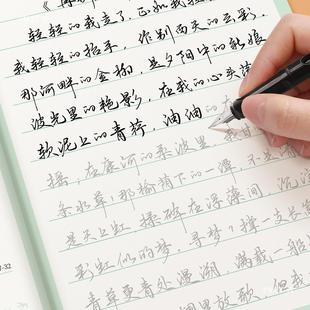 轻轻的我走了,正如我轻
我轻轻的招手,作别西天的云彩。
那河畔的金柳,是夕阳中的新娘
波光里的艳影,在我的心头荡
软泥上的青荇,油油的
摇,在康河的柔波里,我甘
条水草!那榆荫下的一潭,不是清
是天上虹 揉碎在浮藻间,沉
彩虹似的梦。寻梦?撑一支长
青草更青处漫溯,满载一船
里放歌,但我